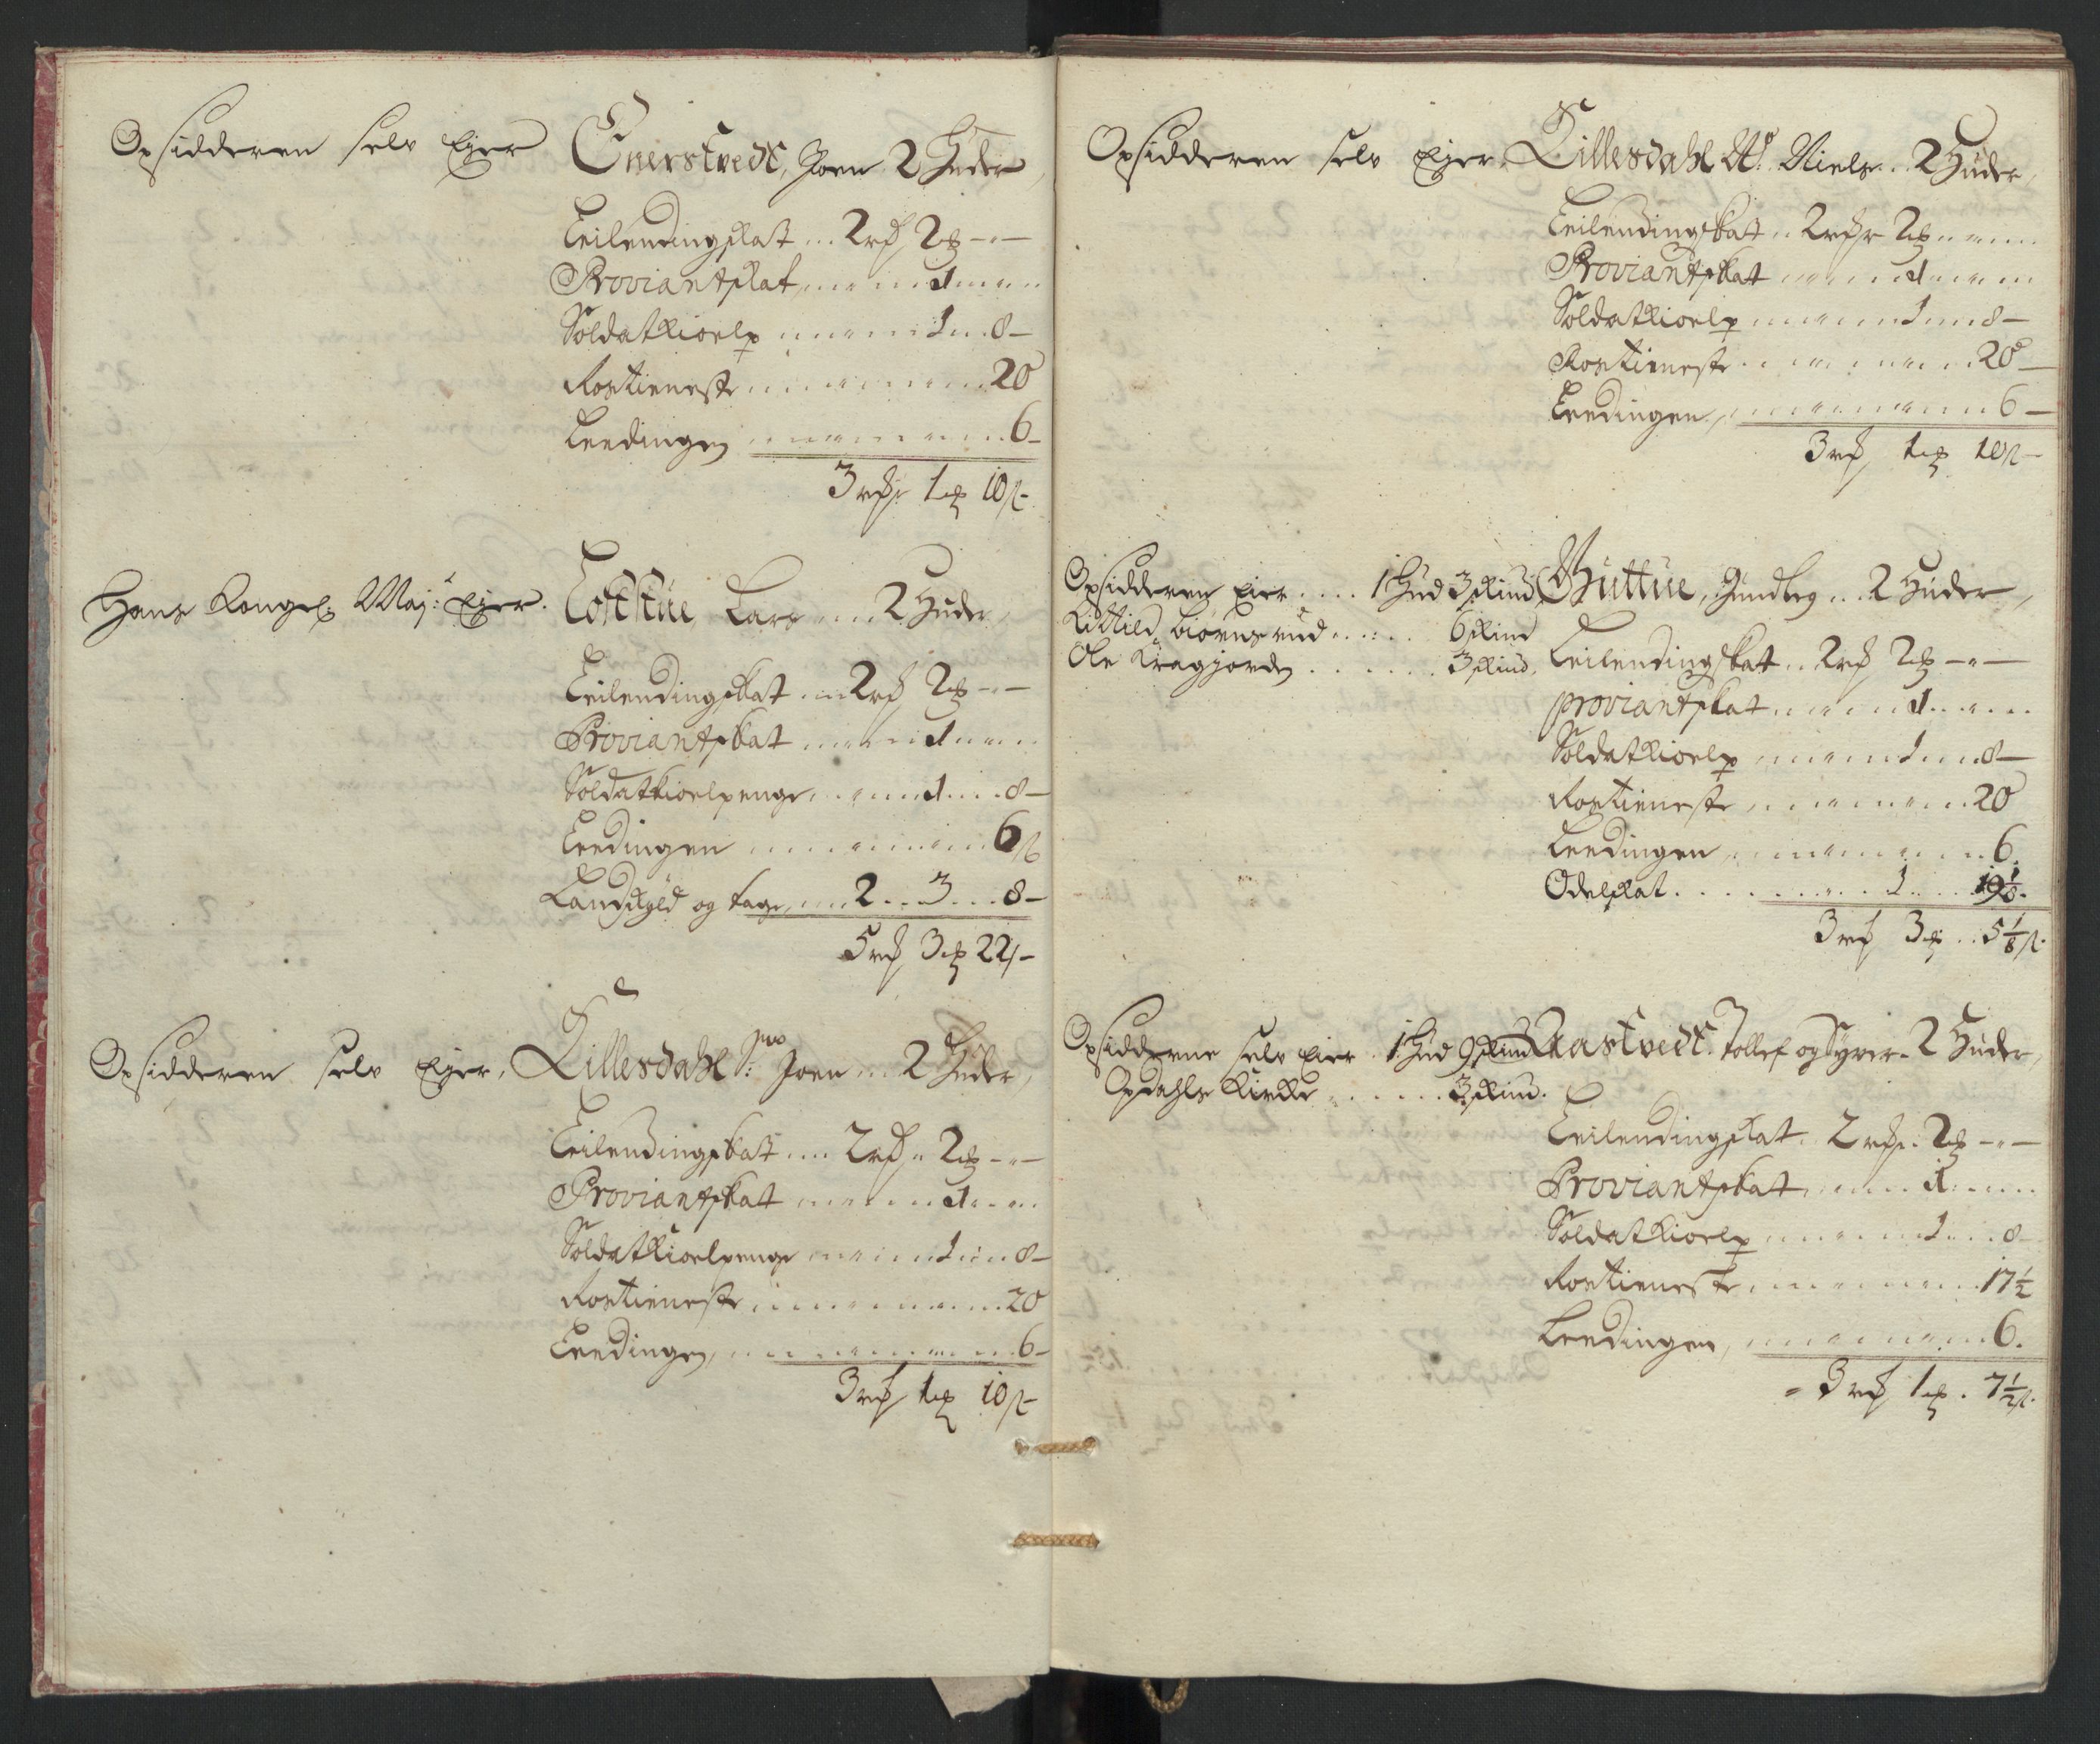 Opsidderen selv Ejer Enerstvedt, Joen 2 Huder,
Leilendingskat ... 2 rd 2 ort - " -
Proviantskat " " " 1 " " "
Soldatkioelp " " " 1 " 8 -
Rostieneste " " " " " 20
Leedingen " " " " " 6 -
3 rdr 1 ort 10 s -
Hans Kongel: Maj: Ejer. Loftstue Lars 2 Huder,
Leilendingskat ... 2 rd 2 ort - " -
Proviantskat " " " 1 " " "
Soldatkioelpenge " " " 1 ... 8 -
Leedingen " " " " " 6 s
Landskyld og tage, ... 2 ... 3 ... 8 -
5 rd 3 ort 22 s -
Opsidderen selv Ejer, Lillesdahl S: Joen ... 2 Huder,
Leilendingskat .... 2 rd " 2 ort - " -
Proviantskat " " " 1 " " "
Soldatkioelpenge " " " 1 " 8 -
Rostieneste " " " " " 20
Leedingen, " " " " " 6 -
3 rd 1 ort 10 s -
Opsidderen selv Ejer. Lillesdahl N: Niels ... 2 Huder,
Leilendingskat " 2 rdr 2 ort " " "
Proviantskat " " " 1 " " "
Soldatkioelp " " " 1 " 8 -
Rostieneste " " " " " 20 -
Leedingen, " " " " " 6 -
3 rd 1 ort 10 s -
Opsidderen Eier .... 1 Hud 3 skind Guttue, Gundbeg ... 2 Huder,
Kittild Biørnsrud ...... 6 skind
Ole Kragjorden ....... 3 skind. Leilendingskat .. 2 rd 2 ort - " -
proviantskat " " " 1 " " "
Soldatkioelp " " " 1 " 8 -
Rostieneste " " " " " 20
Leedingen, " " " " " 6.
Odelskat ......... 1 .... 19 1/8.
3 rd 3 ort .. 5 1/8 s.
Opsidderne selv Eier . 1 Hud 9 skind Aastvedt. Tollef og Syver. 2 Huder,
Opdahls Kirke ....... 3 skind.
Leilendingskat. 2 rdr. 2 ort - " -
Proviantskat " " " 1 " " "
Soldatkioelp " " " 1 ... 8
Rostieneste " " " " " 17 1/2
Leedingen, " " " " " 6.
" 3 rd 1 ort . 7 1/2 s.